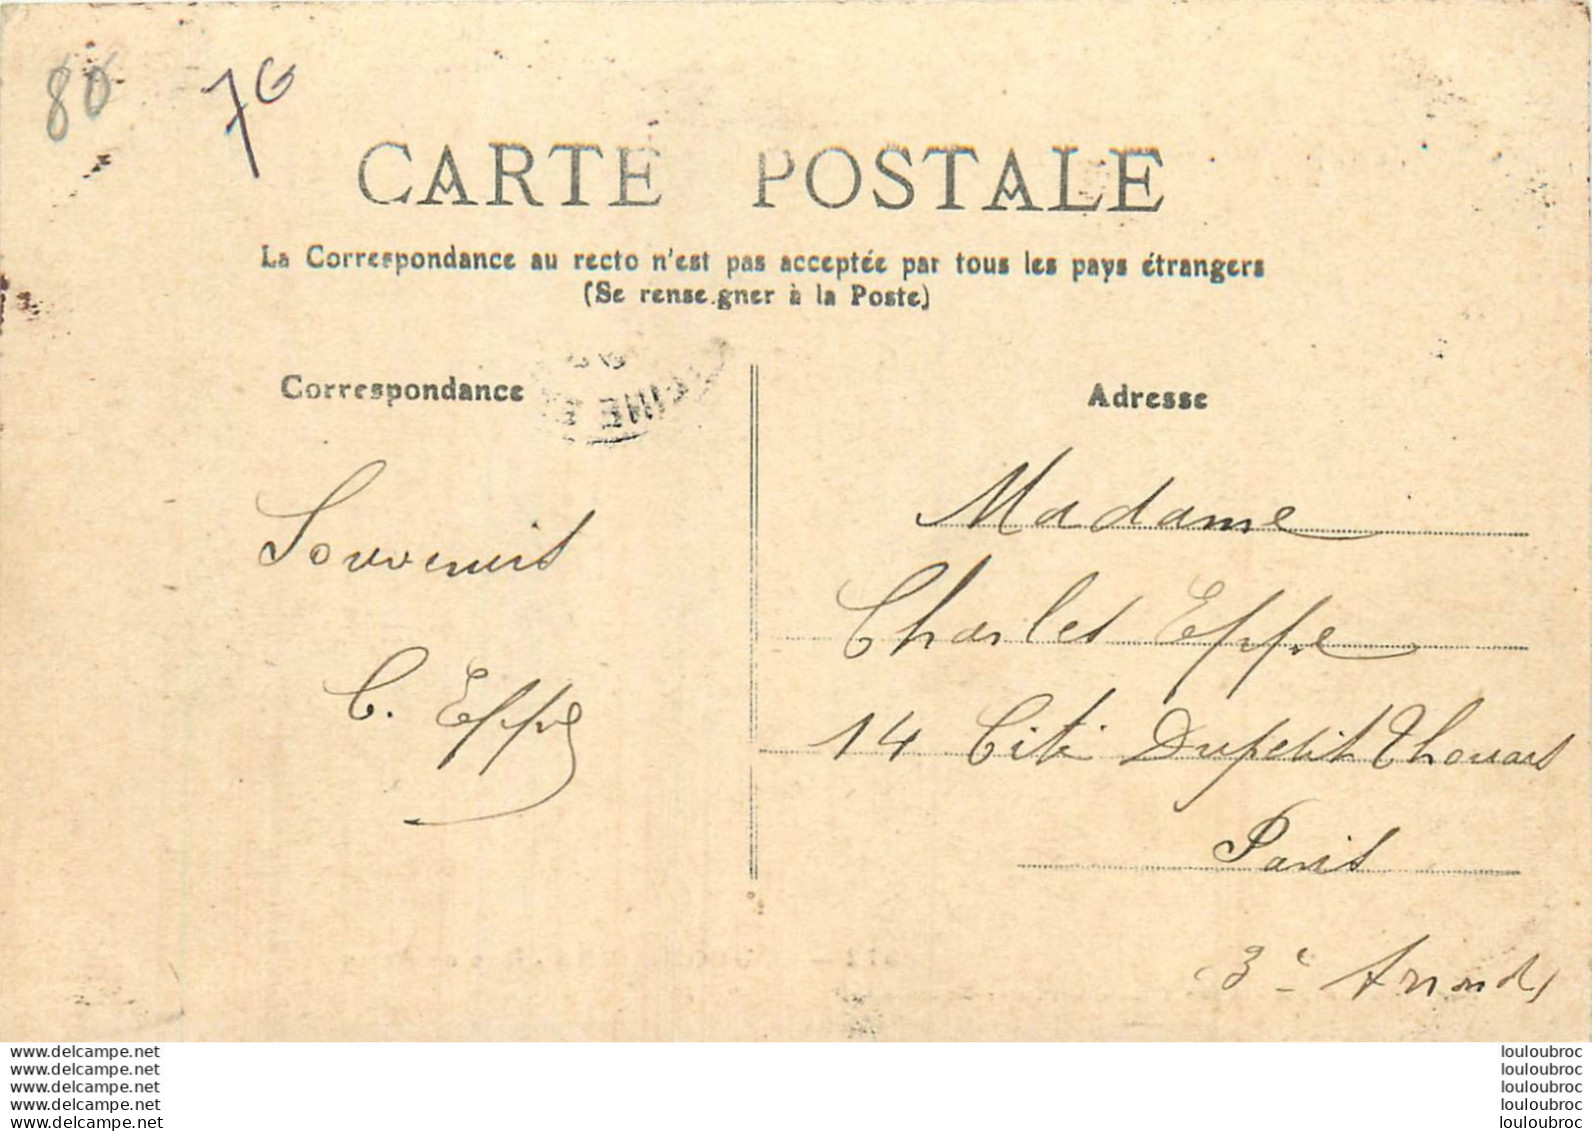 80 76
CARTE POSTALE
La Correspondance au recto n'est pas acceptée par tous les pays étrangers
(Se renseigner à la Poste)
Correspondance
Adresse
Souvenirs
C. Eppe
Madame
Charles Eppe
14 Cité Dupetit Thouars
Paris
(3e Arrond)
www.delcampe.net
www.delcampe.net
www.delcampe.net
www.delcampe.net
www.delcampe.net
louloubroc
louloubroc
louloubroc
louloubroc
louloubroc